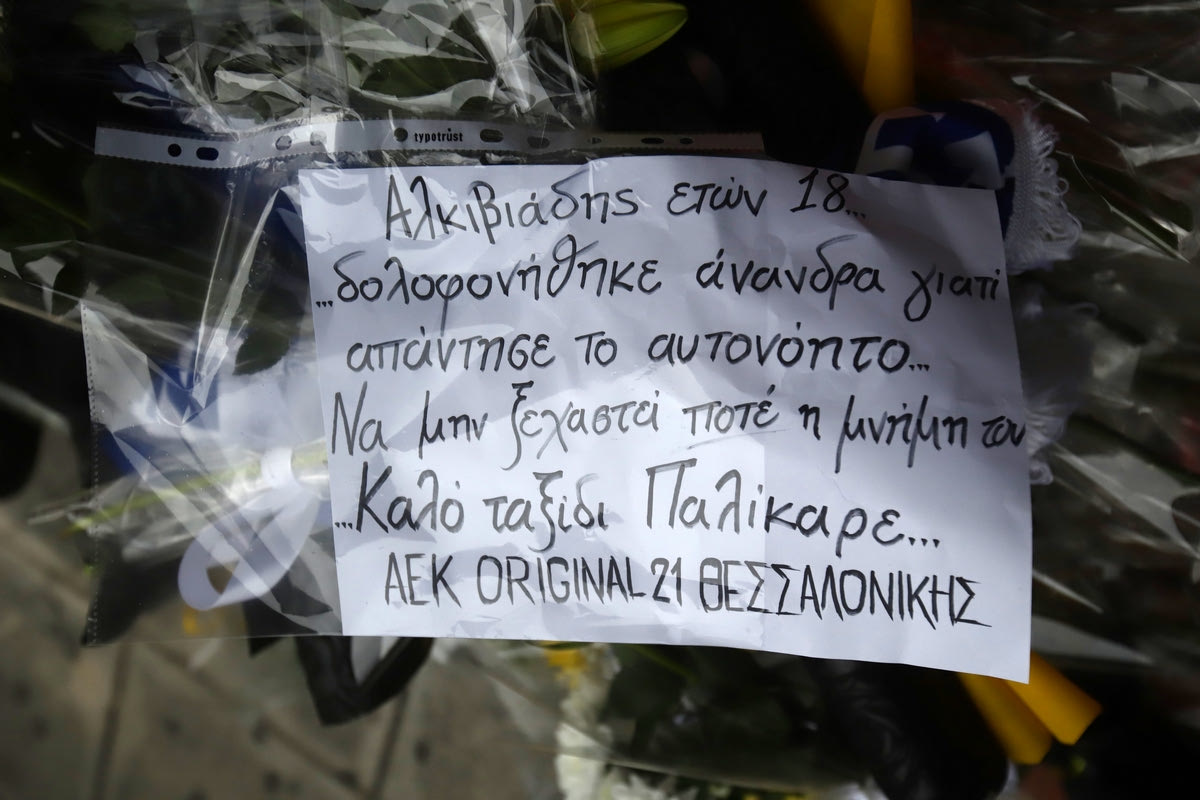 typotrust
Αλκιβιάδης ετών 18...
...δολοφονήθηκε άνανδρα γιατί
απάντησε το αυτονόητο...
Να μην ξεχαστεί ποτέ η μνήμη του
...Καλό ταξίδι Παλίκαρε...
ΑΕΚ ORIGINAL 21 ΘΕΣΣΑΛΟΝΙΚΗΣ